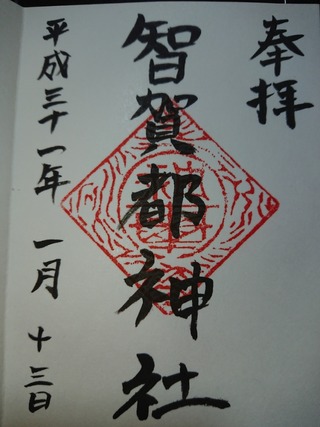 奉拝
智賀都神社
平成三十一年 一月 十三日